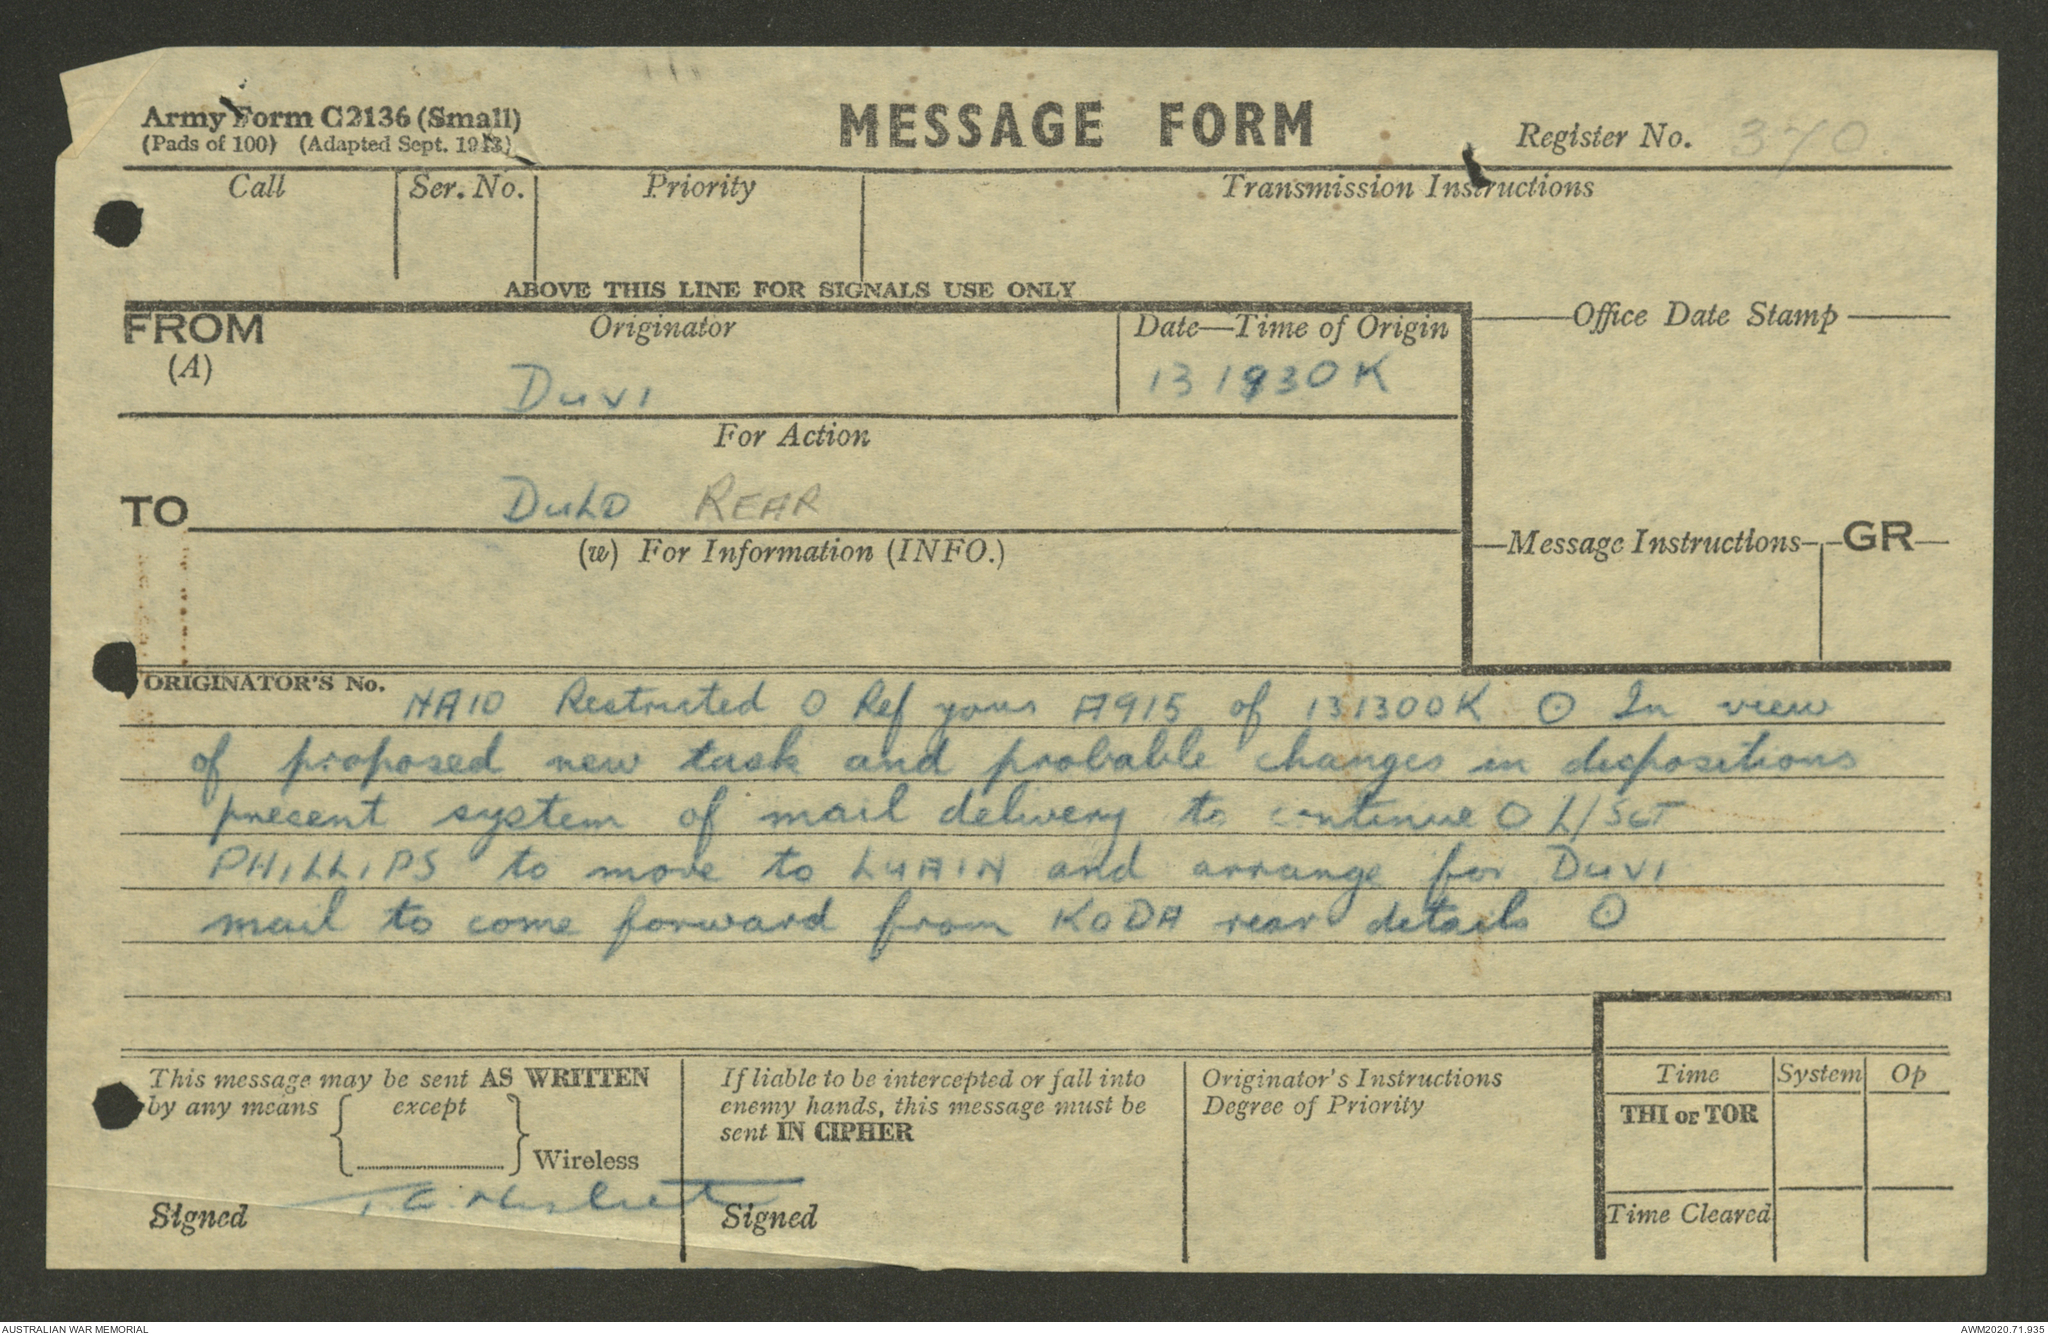 Army Form C2136 (Small)
(Pads of 100) (Adapted Sept. 1943)
MESSAGE FORM
Register No. 370
Call Ser. No. Priority Transmission Instructions
ABOVE THIS LINE FOR SIGNALS USE ONLY
FROM Originator Date—Time of Origin Office Date Stamp
(A) DUVI 131930K
For Action
TO DULO REAR
(w) For Information (INFO.) Message Instructions GR
ORIGINATOR'S No.
NA10 Restricted O Ref your A915 of 131300K O In view
of proposed new task and probable changes in dispositions
present system of mail delivery to continue O L/SGT
PHILLIPS to move to and arrange for DUVI
mail to come forward from KODA rear details O
This message may be sent AS WRITTEN
by any means except
Wireless
Signed
If liable to be intercepted or fall into
enemy hands, this message must be
sent IN CIPHER
Signed
Originator's Instructions
Degree of Priority
Time System Op
THI or TOR
Time Cleared
AUSTRALIAN WAR MEMORIAL
AWM2020.71.935